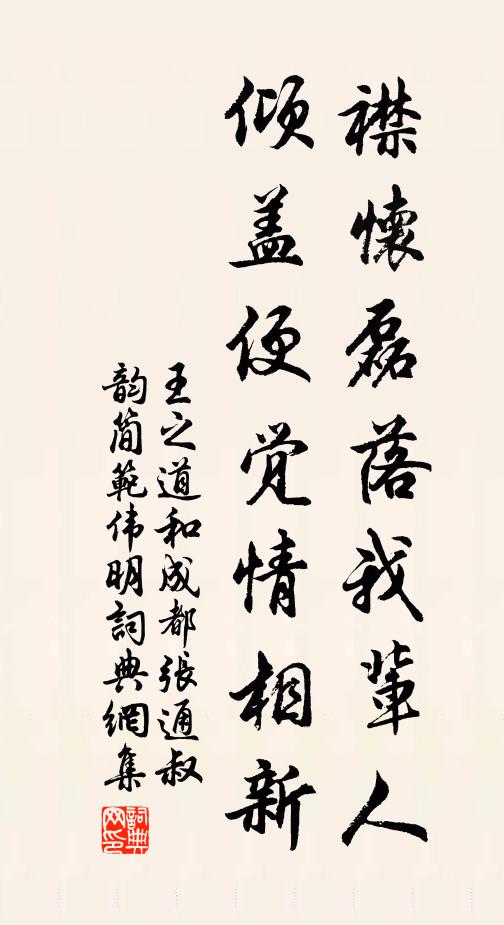 襟懷磊落我輩人
傾盖便覚情相新
王之道和成都張通叔
韵簡範伟明詞典網集
詞典网印